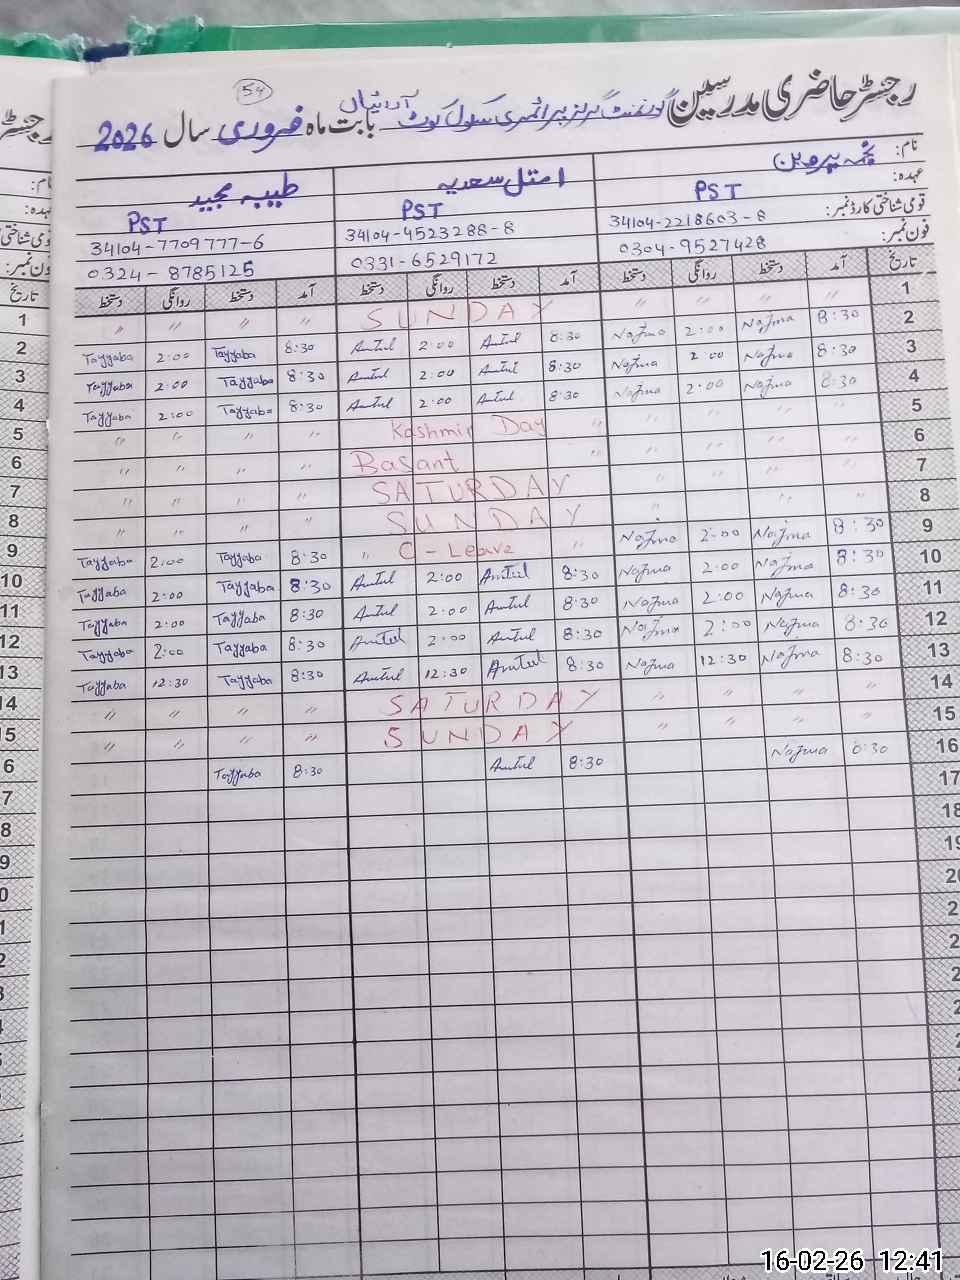 54
رجسٹر حاضری مدرسین گورنمنٹ گرلز پرائمری سکول کوٹ آرائیاں بابت ماہ فروری سال 2026
نام: نجمہ پروین امتل سعدیہ طیبہ مجید
عہدہ: PST PST PST
قومی شناختی کارڈ نمبر: 34104-2218603-8 34104-4523288-8 34104-7709777-6
فون نمبر: 0304-9527428 0331-6529172 0324-8785125
تاریخ آمد دستخط روانگی دستخط آمد دستخط روانگی دستخط آمد دستخط روانگی دستخط تاریخ
1 " " " " SUNDAY " " " " 1
2 Tayyaba 2:00 Tayyaba 8:30 Amtul 2:00 Amtul 8:30 Najma 2:00 Najma 8:30 2
3 Tayyaba 2:00 Tayyaba 8:30 Amtul 2:00 Amtul 8:30 Najma 2:00 Najma 8:30 3
4 Tayyaba 2:00 Tayyaba 8:30 Amtul 2:00 Amtul 8:30 Najma 2:00 Najma 8:30 4
5 " " " " Kashmir Day " " " " " 5
6 " " " " Basant " " " " " 6
7 " " " " SATURDAY " " " " 7
8 " " " " SUNDAY " " " " 8
9 Tayyaba 2:00 Tayyaba 8:30 " C-Leave " Najma 2:00 Najma 8:30 9
10 Tayyaba 2:00 Tayyaba 8:30 Amtul 2:00 Amtul 8:30 Najma 2:00 Najma 8:30 10
11 Tayyaba 2:00 Tayyaba 8:30 Amtul 2:00 Amtul 8:30 Najma 2:00 Najma 8:30 11
12 Tayyaba 2:00 Tayyaba 8:30 Amtul 2:00 Amtul 8:30 Najma 2:00 Najma 8:30 12
13 Tayyaba 12:30 Tayyaba 8:30 Amtul 12:30 Amtul 8:30 Najma 12:30 Najma 8:30 13
14 " " " " SATURDAY " " " " 14
15 " " " " SUNDAY " " " " 15
6 Tayyaba 8:30 Amtul 8:30 Najma 8:30 16
7 17
8 18
9 19
0 20
16-02-26 12:41